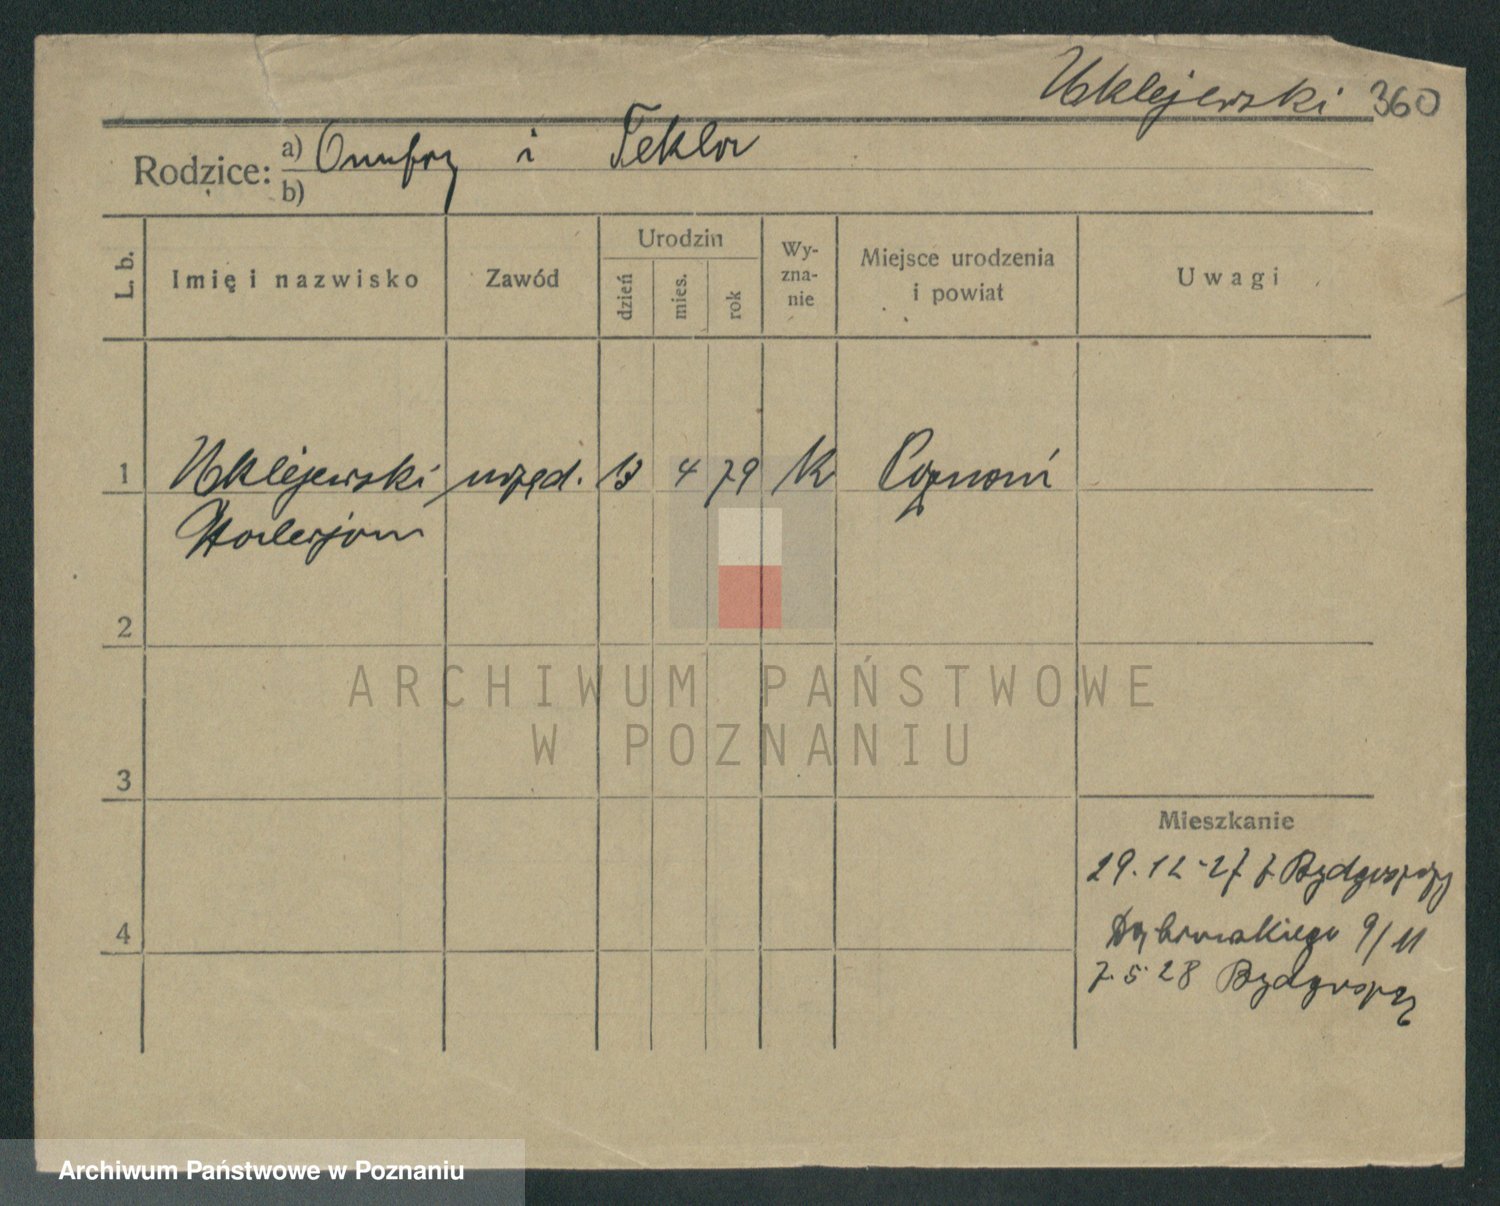 Uklejewski 360
Rodzice: a) Onufry i Tekla
b)
L. b. Imię i nazwisko Zawód Urodzin dzień mies. rok Wy-zna-nie Miejsce urodzenia i powiat Uwagi
1 Uklejewski urzęd. 13 4 79 K Poznań
Walerjan
2
ARCHIWUM PAŃSTWOWE
W POZNANIU
3
Mieszkanie
29.12-27 z Bydgoszczy
4
Dąbrowskiego 9/11
7.5.28 Bydgoszcz
Archiwum Państwowe w Poznaniu